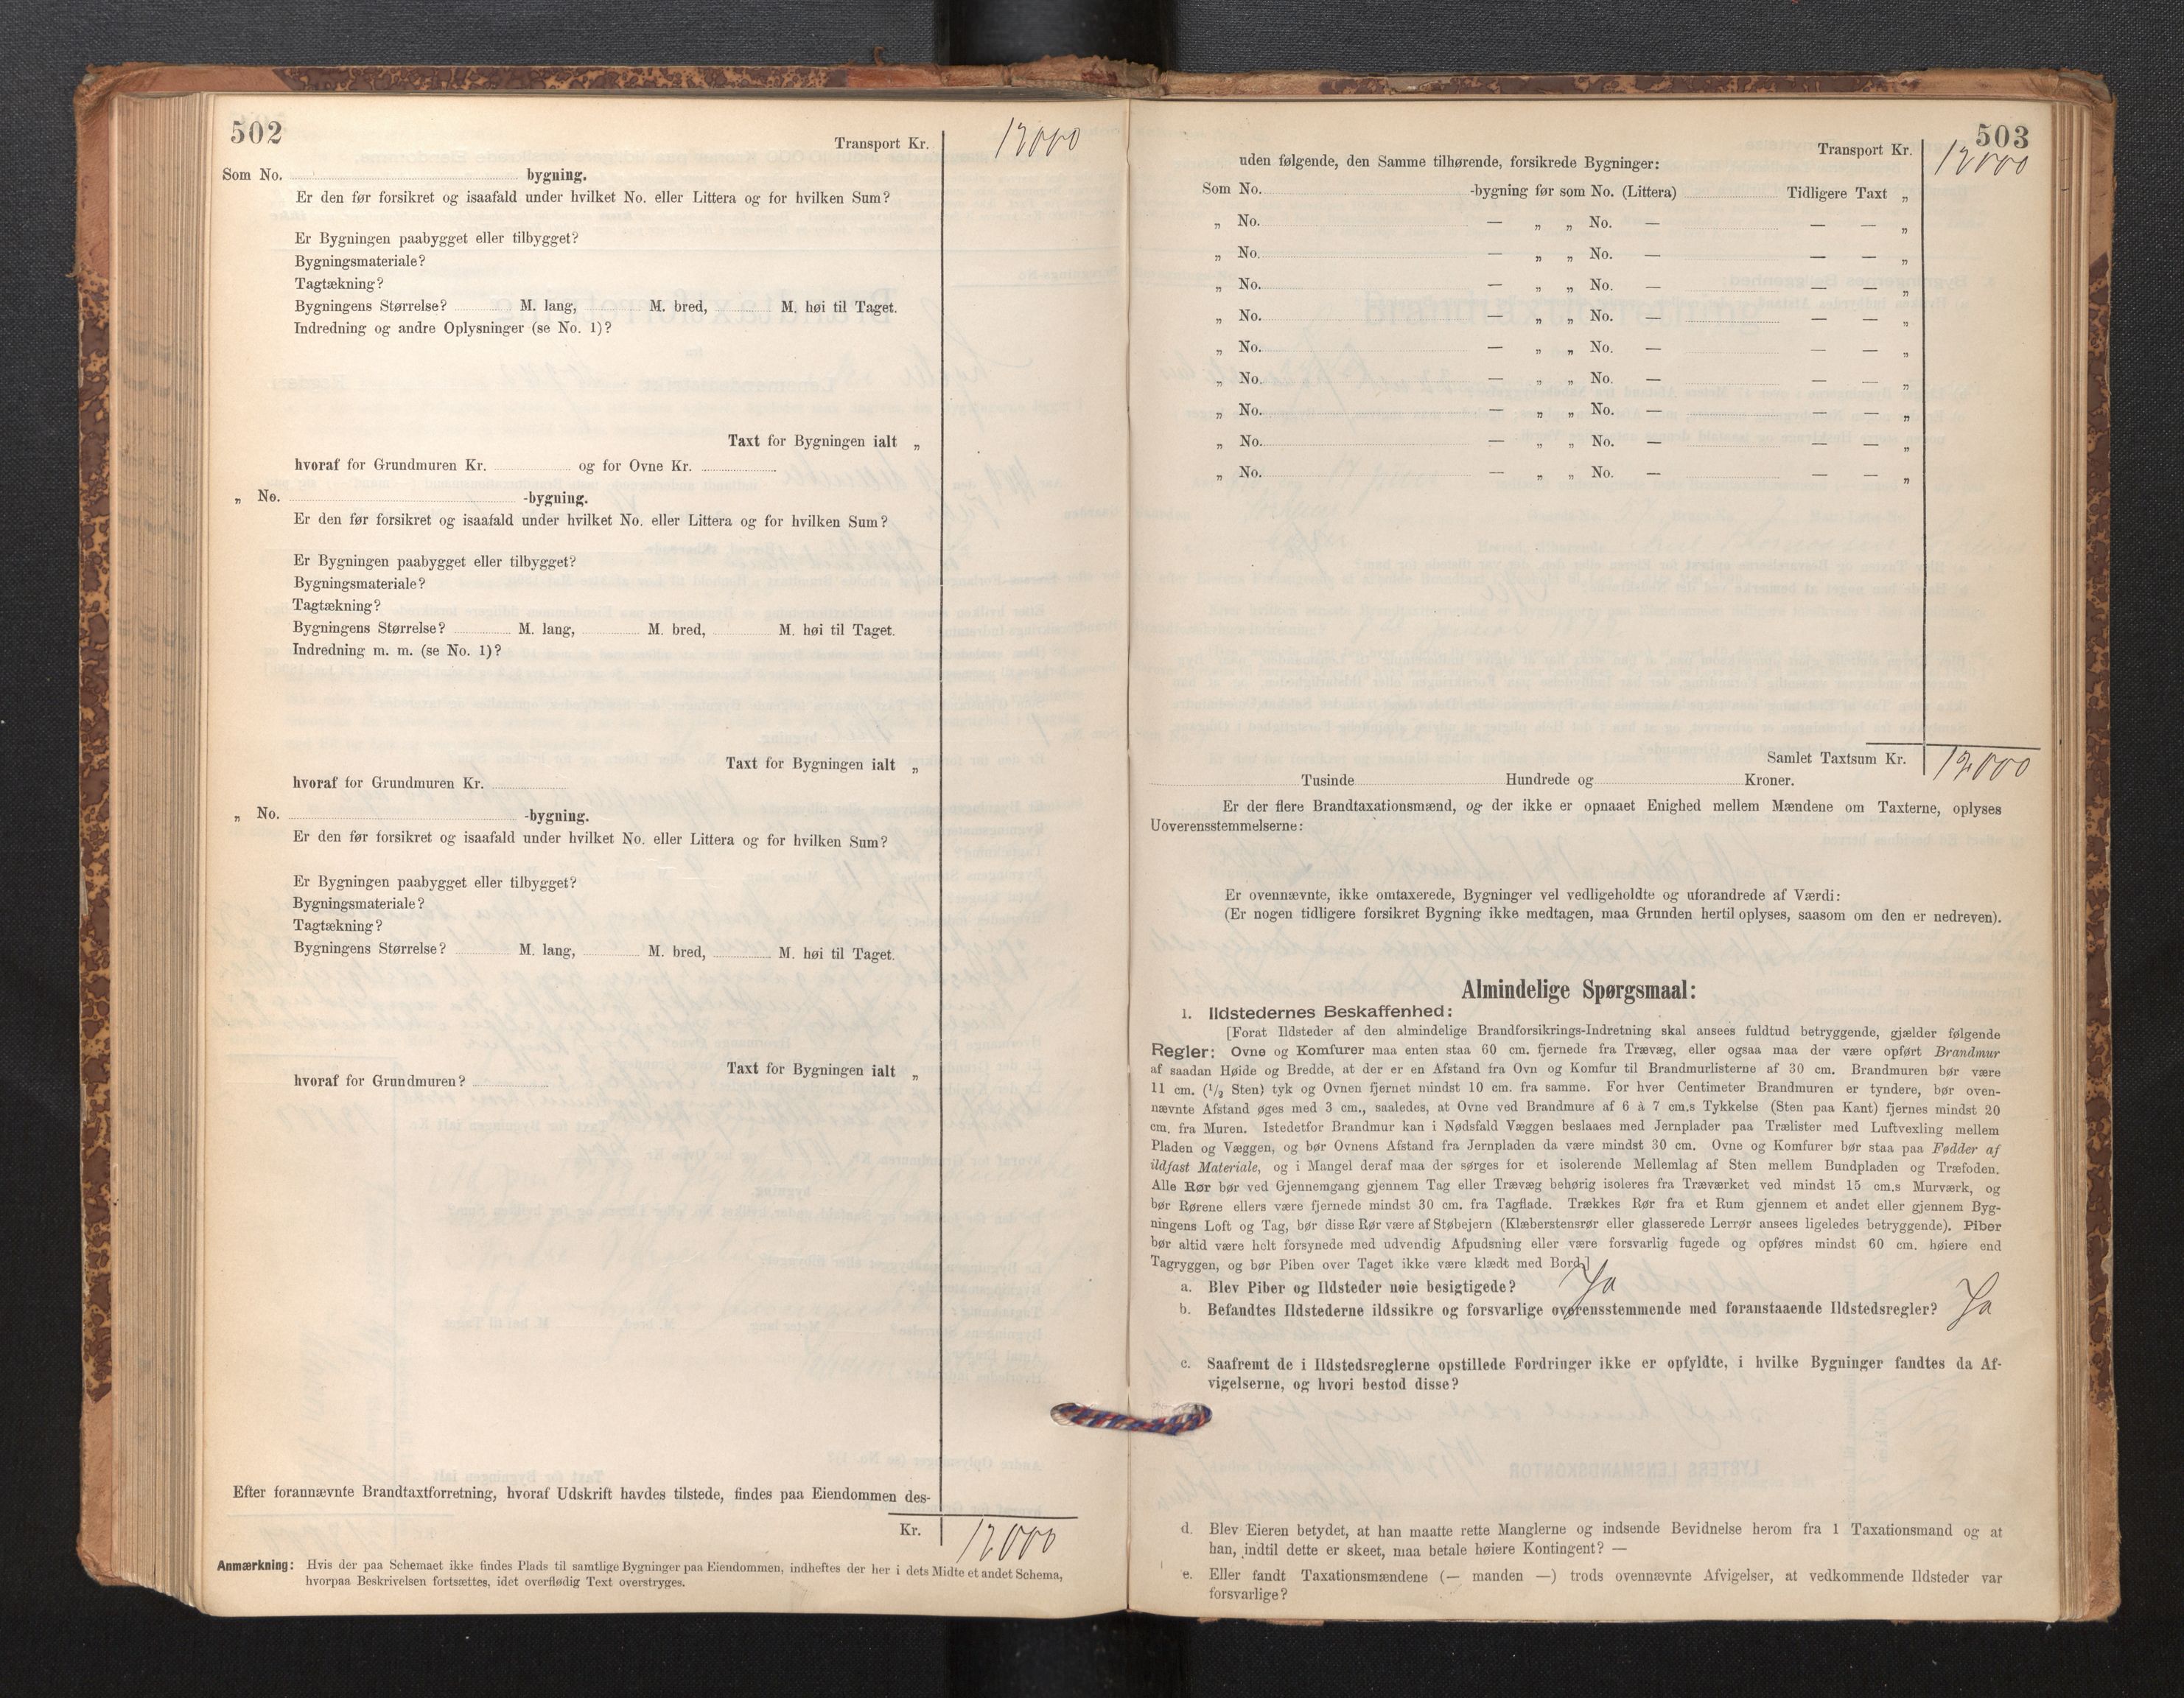 502
Transport Kr. 12000
Som No. bygning.
Er den før forsikret og isaafald under hvilket No. eller Littera og for hvilken Sum?
Er Bygningen paabygget eller tilbygget?
Bygningsmateriale?
Tagtækning?
Bygningens Størrelse? M. lang, M. bred, M. høi til Taget.
Indredning og andre Oplysninger (se No. 1)?
Taxt for Bygningen ialt „
hvoraf for Grundmuren Kr. og for Ovne Kr.
„ No. -bygning.
Er den før forsikret og isaafald under hvilket No. eller Littera og for hvilken Sum?
Er Bygningen paabygget eller tilbygget?
Bygningsmateriale?
Tagtækning?
Bygningens Størrelse? M. lang, M. bred, M. høi til Taget.
Indredning m. m. (se No. 1)?
Taxt for Bygningen ialt „
hvoraf for Grundmuren Kr.
„ No. -bygning.
Er den før forsikret og isaafald under hvilket No. eller Littera og for hvilken Sum?
Er Bygningen paabygget eller tilbygget?
Bygningsmateriale?
Tagtækning?
Bygningens Størrelse? M. lang, M. bred, M. høi til Taget.
Taxt for Bygningen ialt „
hvoraf for Grundmuren?
Efter forannævnte Brandtaxtforretning, hvoraf Udskrift havdes tilstede, findes paa Eiendommen des-
Kr. 12000
Anmærkning: Hvis der paa Schemaet ikke findes Plads til samtlige Bygninger paa Eiendommen, indheftes der her i dets Midte et andet Schema,
hvorpaa Beskrivelsen fortsættes, idet overflødig Text overstryges.
503
Transport Kr. 12000
uden følgende, den Samme tilhørende, forsikrede Bygninger:
Som No. -bygning før som No. (Littera) Tidligere Taxt „
„ No. — „ „ No. — — — „
„ No. — „ „ No. — — — „
„ No. — „ „ No. — — — „
„ No. — „ „ No. — — — „
„ No. — „ „ No. — — — „
„ No. — „ „ No. — — — „
„ No. — „ „ No. — — — „
„ No. — „ „ No. — — — „
„ No. — „ „ No. — — — „
Samlet Taxtsum Kr. 12000
Tusinde Hundrede og Kroner.
Er der flere Brandtaxationsmænd, og der ikke er opnaaet Enighed mellem Mændene om Taxterne, oplyses
Uoverensstemmelserne:
Er ovennævnte, ikke omtaxerede, Bygninger vel vedligeholdte og uforandrede af Værdi:
(Er nogen tidligere forsikret Bygning ikke medtagen, maa Grunden hertil oplyses, saasom om den er nedreven).
Almindelige Spørgsmaal:
1. Ildstedernes Beskaffenhed:
[Forat Ildsteder af den almindelige Brandforsikrings-Indretning skal ansees fuldtud betryggende, gjælder følgende
Regler: Ovne og Komfurer maa enten staa 60 cm. fjernede fra Trævæg, eller ogsaa maa der være opført Brandmur
af saadan Høide og Bredde, at der er en Afstand fra Ovn og Komfur til Brandmurlisterne af 30 cm. Brandmuren bør være
11 cm. (1/2 Sten) tyk og Ovnen fjernet mindst 10 cm. fra samme. For hver Centimeter Brandmuren er tyndere, bør oven-
nævnte Afstand øges med 3 cm., saaledes, at Ovne ved Brandmure af 6 à 7 cm.s Tykkelse (Sten paa Kant) fjernes mindst 20
cm. fra Muren. Istedetfor Brandmur kan i Nødsfald Væggen beslaaes med Jernplader paa Trælister med Luftvexling mellem
Pladen og Væggen, og bør Ovnens Afstand fra Jernpladen da være mindst 30 cm. Ovne og Komfurer bør staa paa Fødder af
ildfast Materiale, og i Mangel deraf maa der sørges for et isolerende Mellemlag af Sten mellem Bundpladen og Træfoden.
Alle Rør bør ved Gjennemgang gjennem Tag eller Trævæg behørig isoleres fra Træværket ved mindst 15 cm.s Murværk, og
bør Rørene ellers være fjernede mindst 30 cm. fra Tagflade. Trækkes Rør fra et Rum gjennem et andet eller gjennem Byg-
ningens Loft og Tag, bør disse Rør være af Støbejern (Klæberstensrør eller glasserede Lerrør ansees ligeledes betryggende). Piber
bør altid være helt forsynede med udvendig Afpudsning eller være forsvarlig fugede og opføres mindst 60 cm. høiere end
Tagryggen, og bør Piben over Taget ikke være klædt med Bord.]
a. Blev Piber og Ildsteder nøie besigtigede? Ja
b. Befandtes Ildstederne ildssikre og forsvarlige overensstemmende med foranstaaende Ildstedsregler? Ja
c. Saafremt de i Ildstedsreglerne opstillede Fordringer ikke er opfyldte, i hvilke Bygninger fandtes da Af-
vigelserne, og hvori bestod disse?
d. Blev Eieren betydet, at han maatte rette Manglerne og indsende Bevidnelse herom fra 1 Taxationsmand og at
han, indtil dette er skeet, maa betale høiere Kontingent? —
e. Eller fandt Taxationsmændene (— manden —) trods ovennævnte Afvigelser, at vedkommende Ildsteder var
forsvarlige?